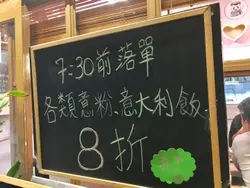 7:30前落單
各類意粉、意大利飯
8折